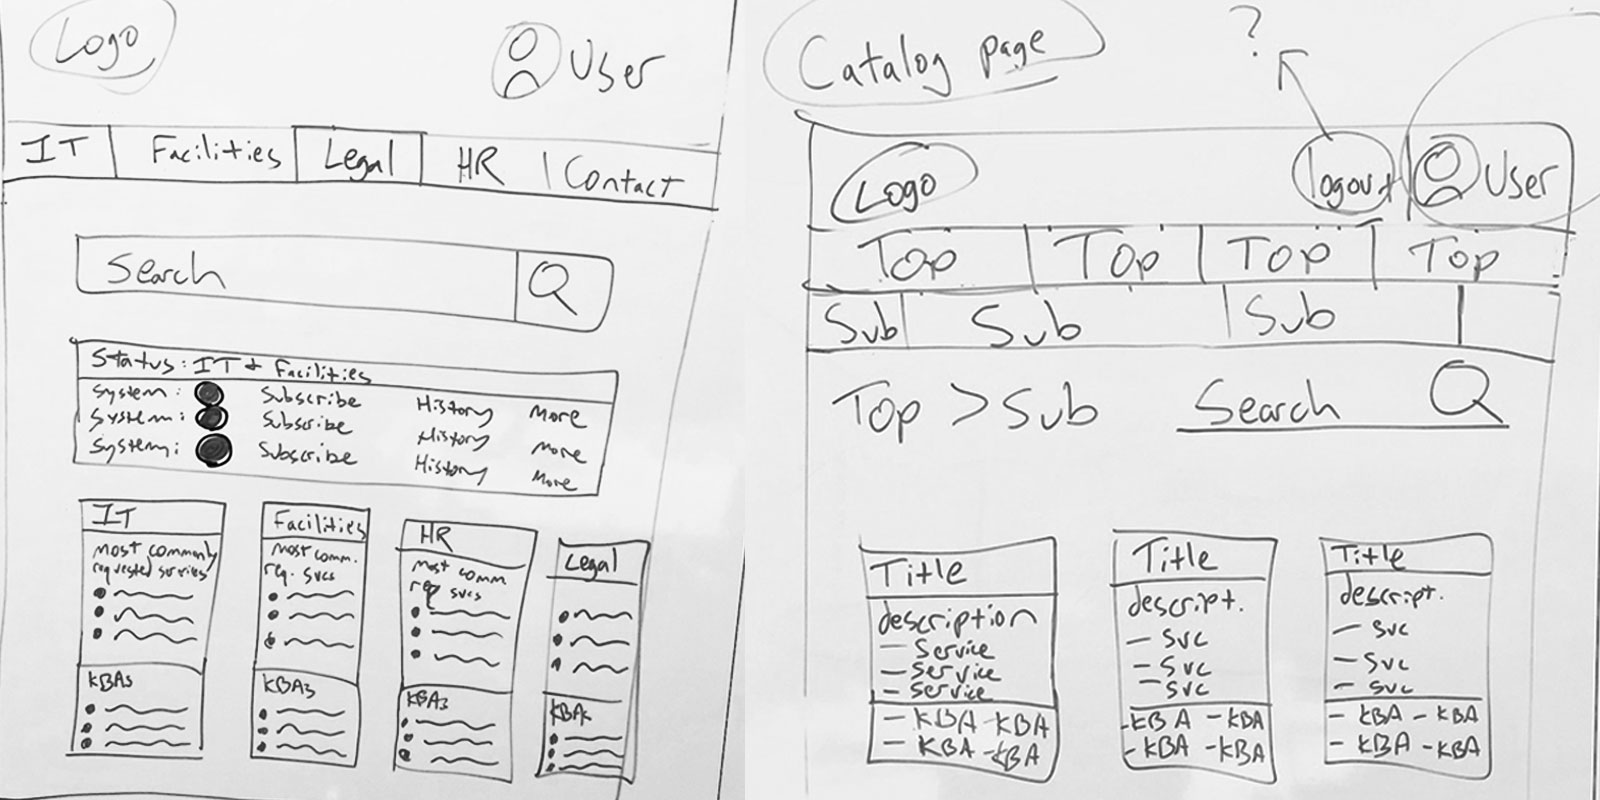 Logo
User
IT Facilities Legal HR Contact
Search
Status: IT + Facilities
System: Subscribe History More
System: Subscribe History More
System: Subscribe History More
IT
most commonly
requested services
KBAs
Facilities
most comm.
req. svcs
KBAs
HR
most comm
req svcs
KBAs
Legal
KBAs
Catalog page
?
Logo
logout
User
Top Top Top Top
Sub Sub Sub
Top > Sub
Search
Title
description
- Service
- Service
- Service
- KBA - KBA
- KBA - KBA
Title
descript.
- svc
- svc
- svc
- KBA - KBA
- KBA - KBA
Title
descript.
- svc
- svc
- svc
- KBA - KBA
- KBA - KBA